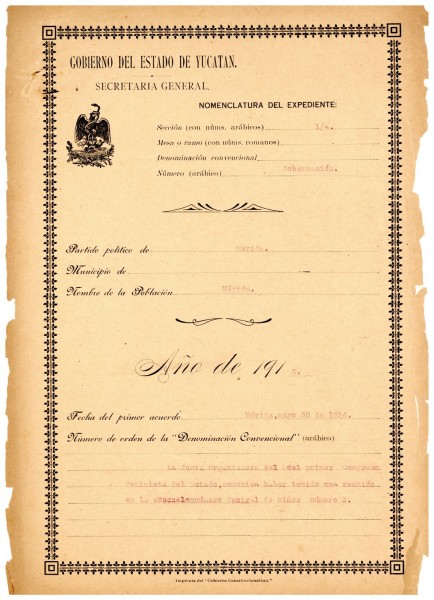 GOBIERNO DEL ESTADO DE YUCATAN.
SECRETARIA GENERAL.
NOMENCLATURA DEL EXPEDIENTE:
Sección (con núms. arábicos) 1/a.
Mesa o ramo (con núms. romanos)
Denominación convencional
Número (arábico) Gobernación.
Partido político de Mérida.
Municipio de
Nombre de la Población Mérida.
Año de 191
Fecha del primer acuerdo Mérida, mayo 30 de 1916.
Número de orden de la "Denominación Convencional" (arábico)
La Junta Organizadora del del primer Congreso
Feminista del Estado, comunica haber tenido una reunión
en la de niñas número 3.
Imprenta del "Gobierno Constitucionalista."